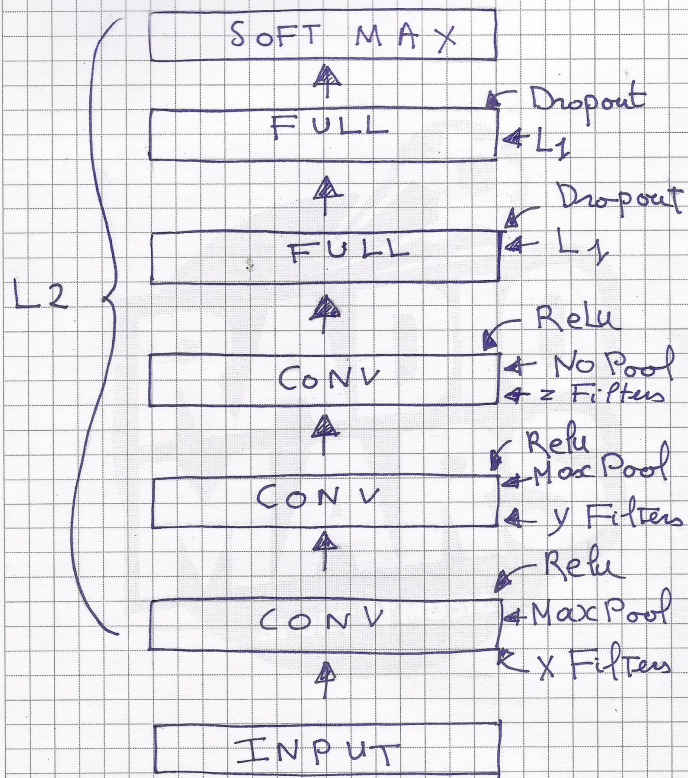 SOFT MAX
Dropout
FULL
L1
Dropout
FULL
L1
L2
ReLu
CONV
No Pool
z Filters
Relu
Max Pool
CONV
y Filters
Relu
CONV
Max Pool
X Filters
INPUT